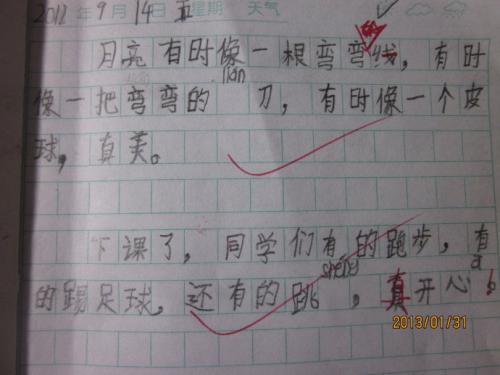 2012年9月14日 五 星期 天气
月亮有时像一根弯弯的线，有时
像一把弯弯的lian刀，有时像一个皮
球，真美。
下课了，同学们有的跑步，有
的踢足球，还有的跳sheng，真开心a
2013/01/31